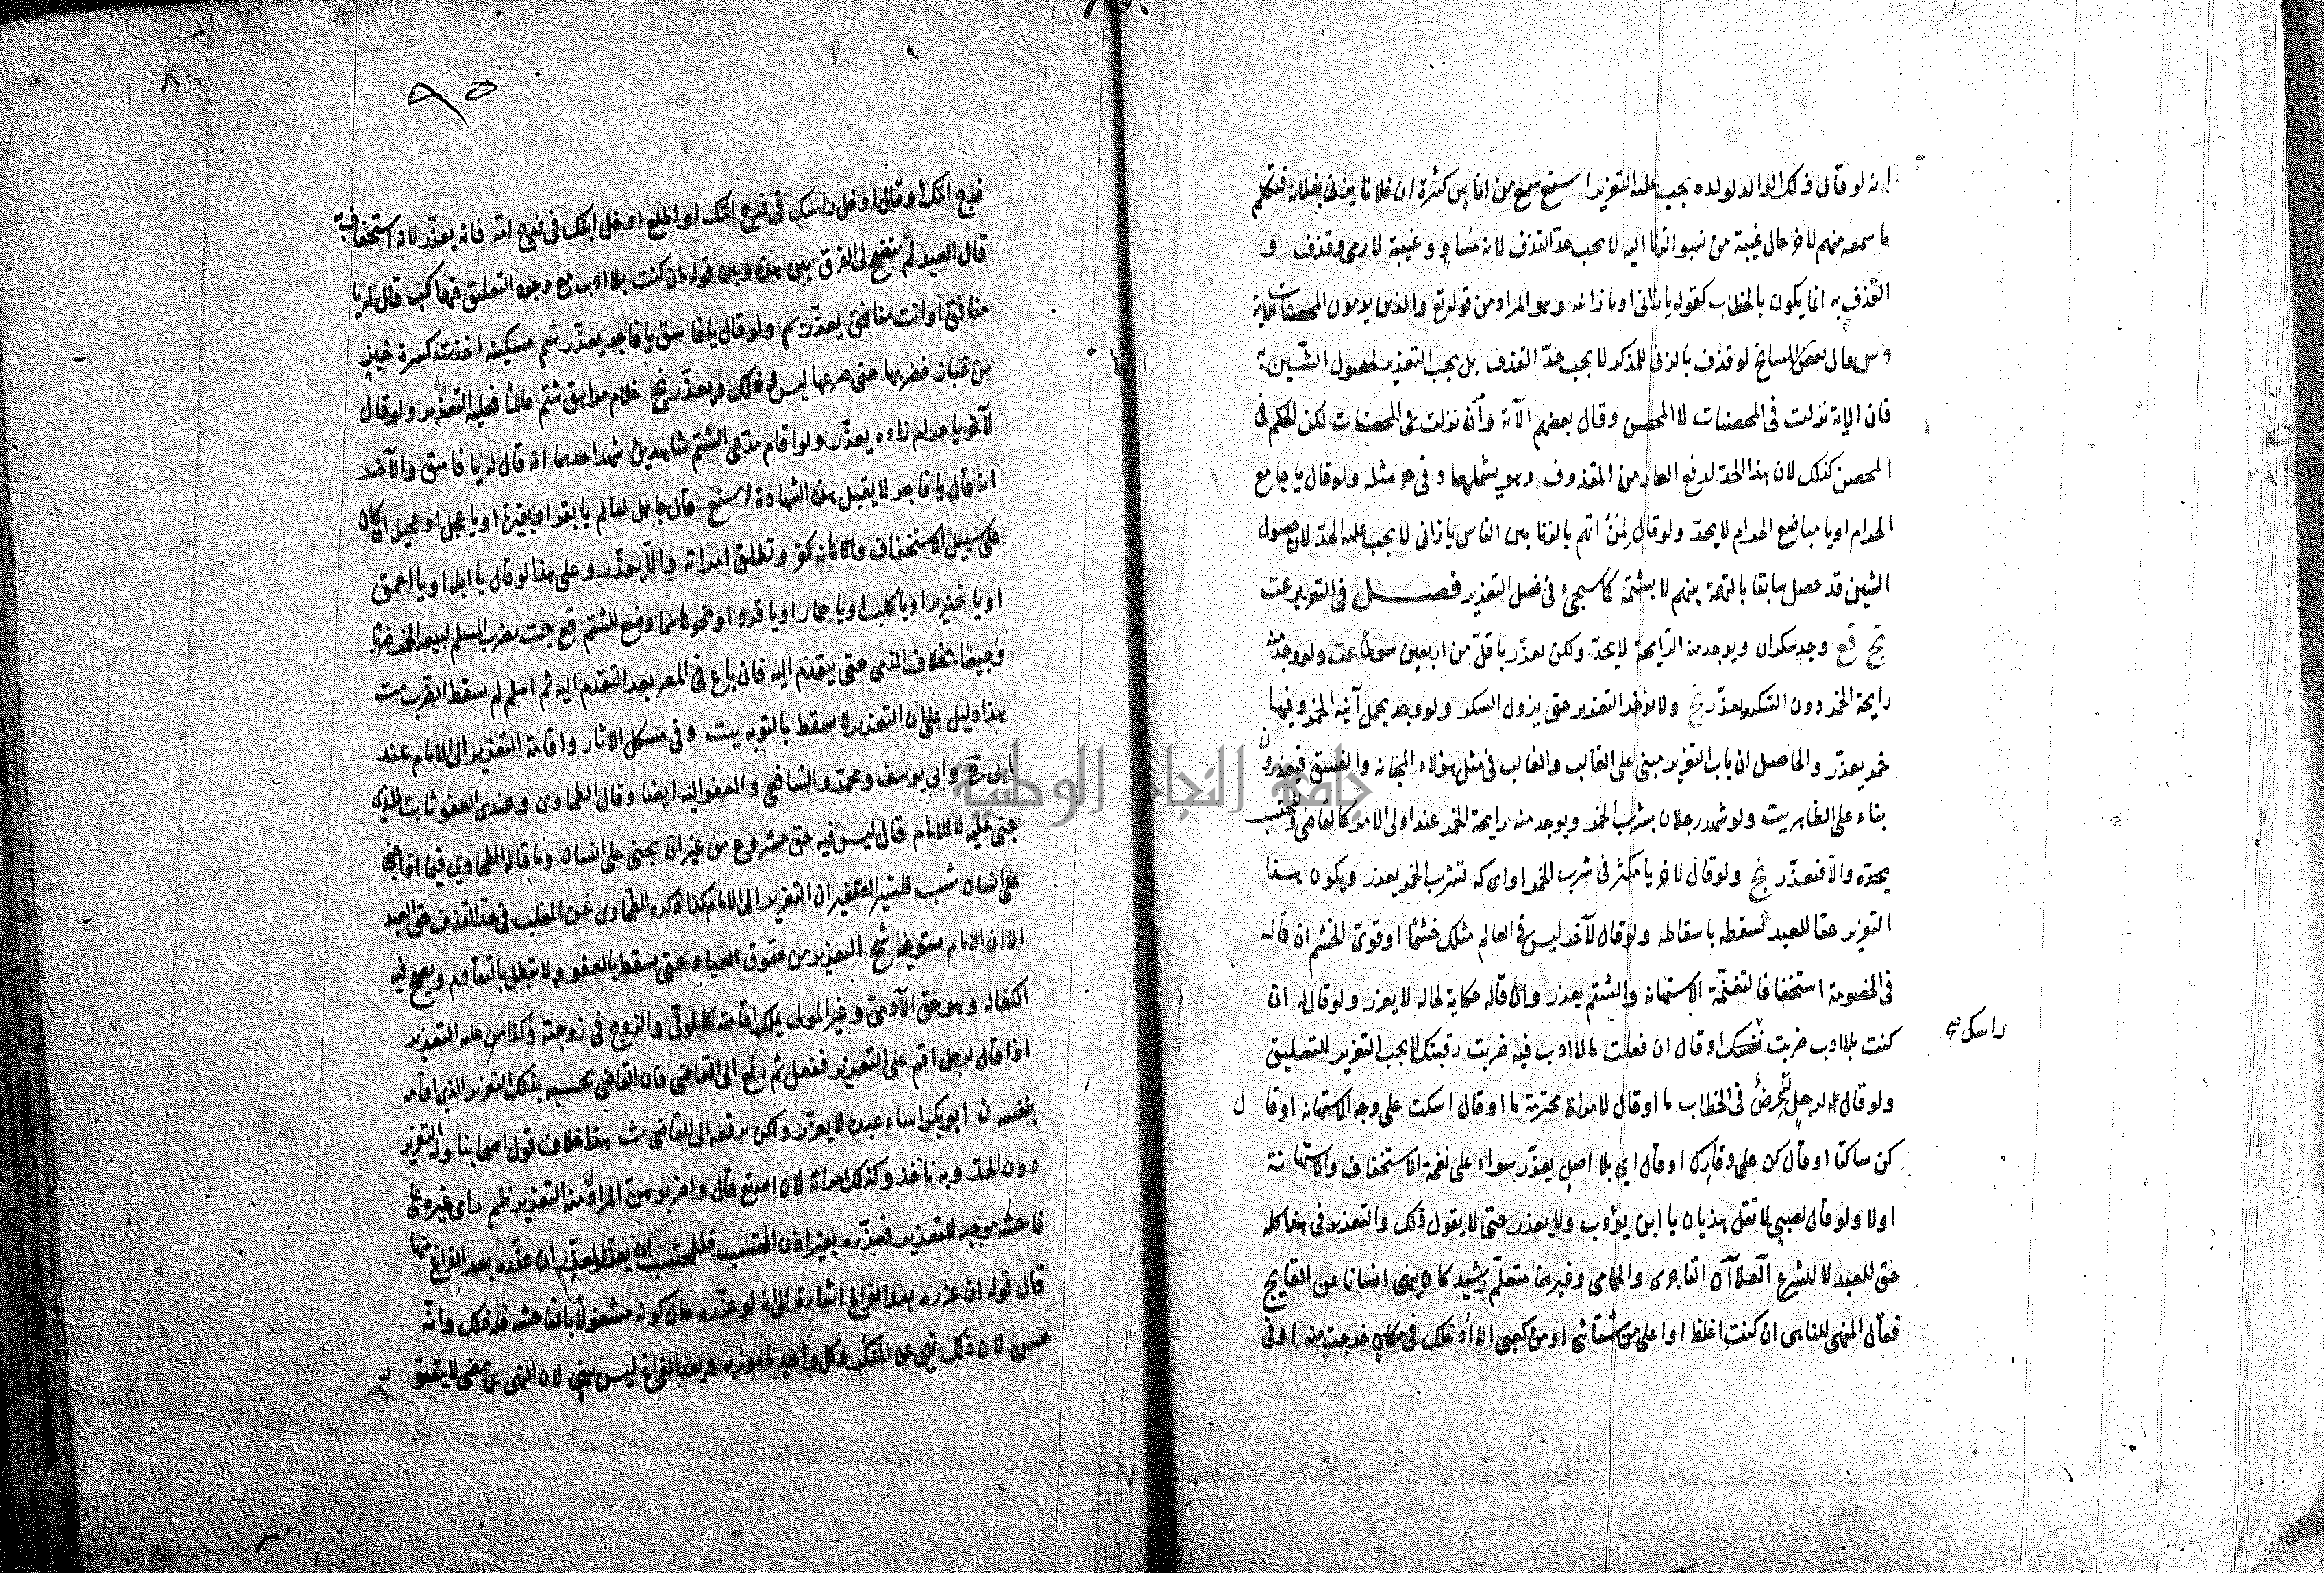 انه لو قال ذلك الوالد لولده يجب عليه التعزير اسنع سمع من اناس كثيرة ان فلانا يزنى بفلانة فتكلم
ما سمعه منهم لآخر حال غيبة من نسبو الزنا اليه لا يجب حد القذف لانه وغيبة لا رمى وقذف و
القذف به انما يكون بالخطاب كقوله يا زانى او يا زانية وهو المراد من قوله تع والذين يرمون المحصنات الاية
قال بعض المشايخ لو قذف بالزنى للمذكر لا يجب حد القذف بل يجب التعزير لحصول الشين به
فان الاية نزلت فى المحصنات لا المحصن وقال بعضهم الآية وان نزلت فى المحصنات لكن الحكم فى
المحصن كذلك لان هذا الحد لدفع العار من المقذوف وهو يشملهما وفى مثله ولو قال يا جامع
الحرام او يا مباضع الحرام لا يحد ولو قال لمن اتهم بالزنا بين الناس يا زانى لا يجب عليه الحد لان حصول
الشين قد حصل سابقا بالتهمة بينهم لا بشتمه كما سيجئ فى فصل التعزير فصل فى التعزير عت
بخ قع وجد سكران ويوجد منه الرايحة لا يحد ولكن يعذر باقل من اربعين سوطا عت ولو وجد منه
رايحة الخمر دون السكر يعذر بخ ولا يؤخذ التعذير حتى يزول السكر ولو وجد يحمل آنية الخمر وفيها
خمر يعذر والحاصل ان باب التعزير مبنى على الغالب والغالب فى مثل هؤلاء المجانة والفسق فيعذرون
بناء على الظاهر بت ولو شهد رجلان بشرب الخمر ويوجد منه رايحة الخمر عند اولى الامر كالقاضى والمحتسب
يحده والا فيعذر بخ ولو قال لآخر يا مكثر فى شرب الخمر او اى كه تشرب الخمر يعذر ويكون هذا
التعزير حقا للعبد يسقطه باسقاطه ولو قال لآخر ليس فى العالم مثلك خشما او قوى الخشم ان قاله
فى الخصومة استخفافا لتضمنه الاستهانة والشتم يعذر وان قاله حكاية لحاله لا يعزر ولو قال له ان
كنت بلا ادب ضربت نفسك او قال ان فعلت مالا ادب فيه ضربت رقبتك لا يجب التعزير للتعليق
راسك صح
ولو قال لرجل فى الخطاب ما او قال لامراة محترمة ما او قال اسكت على وجه الاستهانة او قال
كن ساكتا او قال كن على وقارك او قال اي بلا اصل يعذر سواء على نغمة الاستخفاف والاستهانة
اولا ولو قال لصبى لا تقل هذيان يا ابن يؤدب ولا يعذر حتى لا يقول ذلك والتعذير فى هذا كله
حق للعبد لا للشرع العلاآن التاجرى والحمامى وغيرهما متعلم رشيد كان ينهى انسانا عن القبايح
فقال المنهى للناهى ان كنت اغلظ او اعلى من او من كعبى الا ادخلك فى مكان خرجت منه او فى
٩٥
فرج امك او قال ادخل راسك فى فرج امك او اطلع ادخل ابنك فى فرج امه فانه يعذر لانه استخفاف به
قال العبد لم يتضح لى الفرق بين هذه وبين قوله ان كنت بلا ادب مع وجود التعليق فيهما كب قال له يا
منافق او انت منافق يعذر بم ولو قال يا فاسق يا فاجر يعذر شم مسكينة اخذت كسرة خبز
من خباز فضربها حتى صرعها ليس له ذلك ويعذر بخ غلام مراهق شتم عالما فعليه التعذير ولو قال
لآخر يا حرام زاده يعذر ولو اقام مدعى الشتم شاهدين شهد احدهما انه قال له يا فاسق والآخر
انه قال يا فاجر لا يقبل هذه الشهادة اسنع قال جاهل لعالم يا بقر او يا بقيرة او يا عجل او عجيل ان كان
على سبيل الاستخفاف والاهانة كفر وتطلق امراته والا يعذر وعلى هذا لو قال يا ابله او يا احمق
او يا خنزير او يا كلب او يا حمار او يا قرد او نحوها مما وضع للشتم قع جت يضرب المسلم لبيع الخمر ضربا
وجيعا بخلاف الذمى حتى يتقدم اليه فان باع فى المصر بعد التقدم اليه ثم اسلم لم يسقط الضرب مت
هذا دليل على ان التعذير لا يسقط بالتوبة بت وفى مشكل الاثار واقامة التعذير الى الامام عند
ابى ح وابى يوسف ومحمد والشافعى والعفو اليه ايضا وقال الطحاوى وعندى العفو ثابت للذى
جنى عليه لا للامام قال ليس فيه حق مشروع من غير ان يجنى على انسان وما قاله الطحاوي فيما اذا جنى
على انسان شب للسير الصغير ان التعزير الى الامام كذا ذكره الطحاوى عن المغلب فى حد القذف حق العبد
الا ان الامام يستوفيه شح التعذير من حقوق العباد حتى يسقط بالعفو ولا تبطل بالتقادم ويصح فيه
الكفالة وهو حق الآدمى وغير المولى يملك اقامته كالمولى والزوج فى زوجته وكذا من عليه التعذير
اذا قال لرجل اقم على التعذير ففعل ثم رفع الى القاضى فان القاضى يحسبه بذلك التعزير الذى اقامه
بنفسه ن ابو بكر اساء عبده لا يعزر ولكن يرفعه الى القاضى ث هذا خلاف قول اصحابنا وله التعزير
دون الحد وبه ناخذ وكذلك امراته لان الله تع قال واضربوهن المراد منه التعذير ظم راى غيره على
فاحشة موجبة للتعذير فعذره بغير اذن المحتسب فللمحتسب ان يعذر المعذر ان عذره بعد الفراغ منها
قال قوله ان عزره بعد الفراغ اشارة الى انه لو عزره حال كونه مشغولا بالفاحشة فله ذلك وانه
حسن لان ذلك نهى عن المنكر وكل واحد مامور به وبعد الفراغ ليس بنهى لان النهى عما مضى لا يتحقق